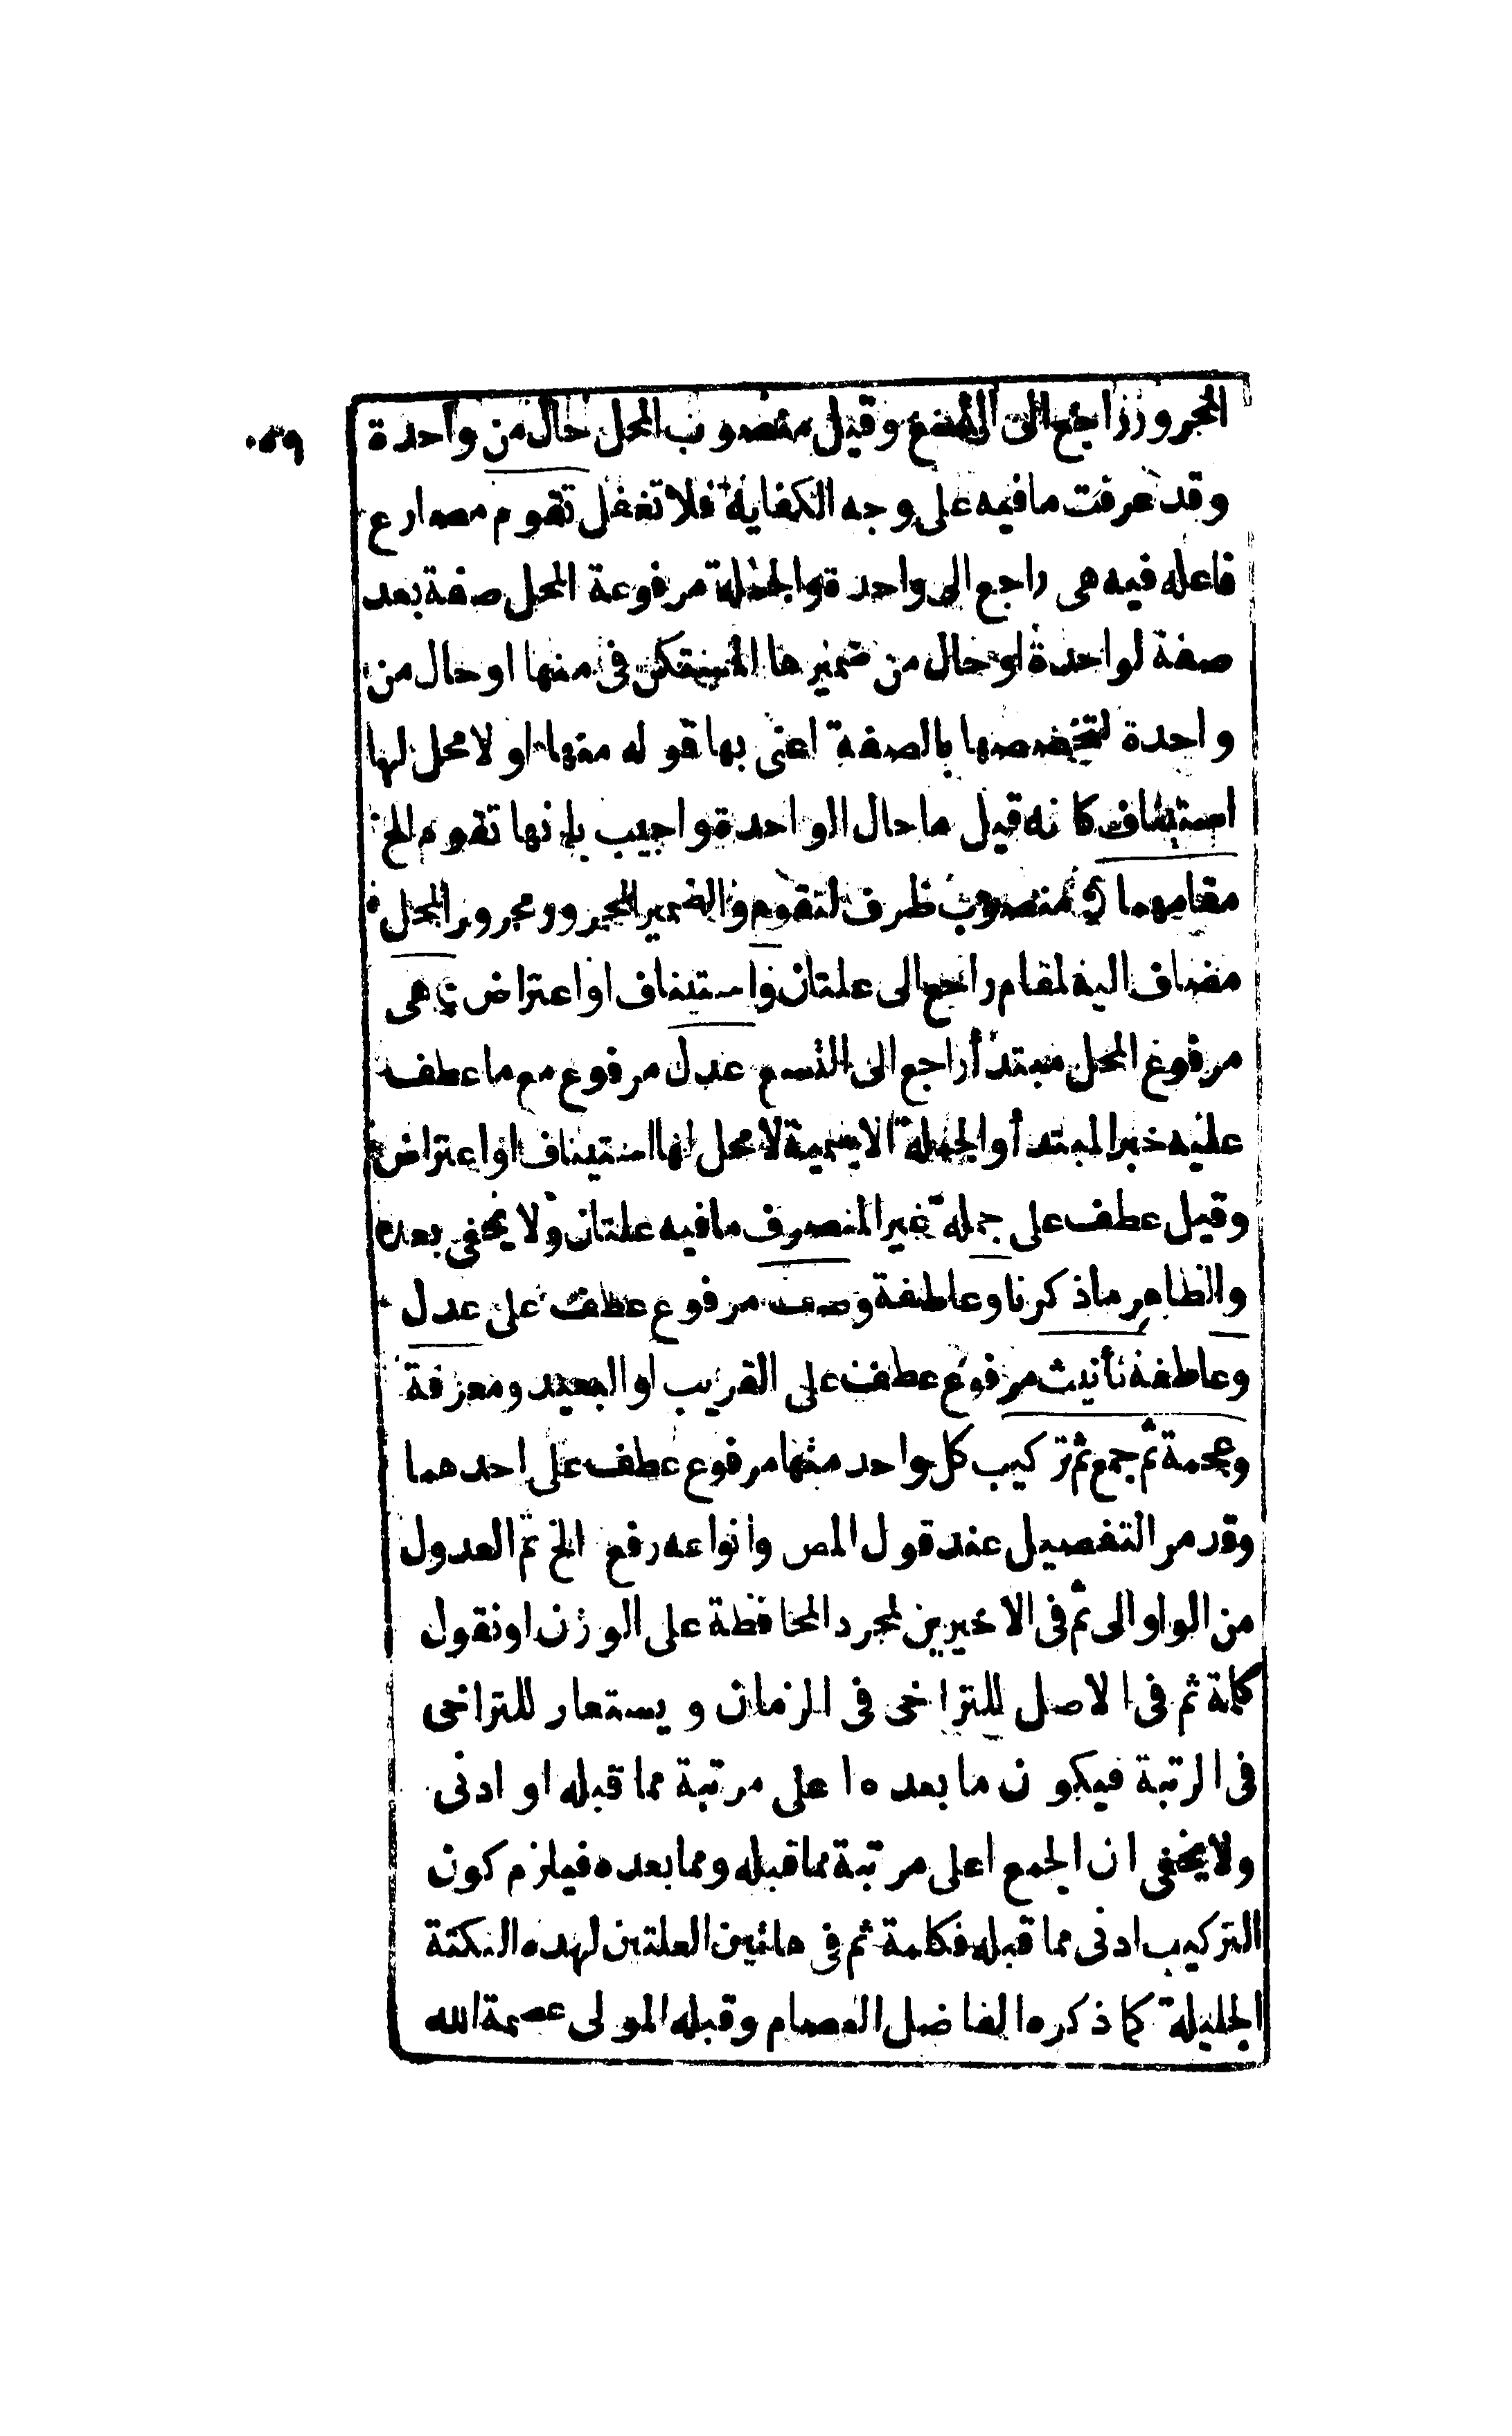 المجرور راجع الى التسع وقيل منصوب المحل حال من واحدة
وقد عرفت ما فيه على وجه الكفاية فلا تغفل تقوم مضارع
فاعله فيه هى راجع الى واحدة والجملة مرفوعة المحل صفة بعد
صفة لواحدة او حال من ضميرها المستكن فى منها او حال من
واحدة لتخصصها بالصفة اعنى بها قوله منها او لا محل لها
استيناف كانه قيل ما حال الواحدة واجيب بانها تقوم الخ
مقامهما منصوب ظرف لتقوم والضمير المجرور مجرور المحل
مضاف اليه لمقام راجع الى علتان و استيناف او اعتراض هى
مرفوع المحل مبتدأ راجع الى التسع عدل مرفوع مع ما عطف
عليه خبر المبتدأ والجملة الاسمية لا محل لها استيناف او اعتراض
وقيل عطف على جملة غير المنصرف ما فيه علتان ولا يخفى بعده
والظاهر ما ذكرنا و عاطفة وصف مرفوع عطف على عدل
و عاطفة تأنيث مرفوع عطف على القريب او البعيد ومعرفة
وعجمة ثم جمع ثم تركيب كل واحد منها مرفوع عطف على احدهما
وقد مر التفصيل عند قول المص وانواعه رفع الخ ثم العدول
من الواو الى ثم فى الاخيرين لمجرد المحافظة على الوزن او نقول
كلمة ثم فى الاصل للتراخى فى الزمان ويستعار للتراخى
فى الرتبة فيكون ما بعده اعلى مرتبة مما قبله او ادنى
ولا يخفى ان الجمع اعلى مرتبة مما قبله ومما بعده فيلزم كون
التركيب ادنى مما قبله فكلمة ثم فى هاتين العلتين لهذه النكتة
الجليلة كما ذكره الفاضل العصام وقبله المولى عصمة الله